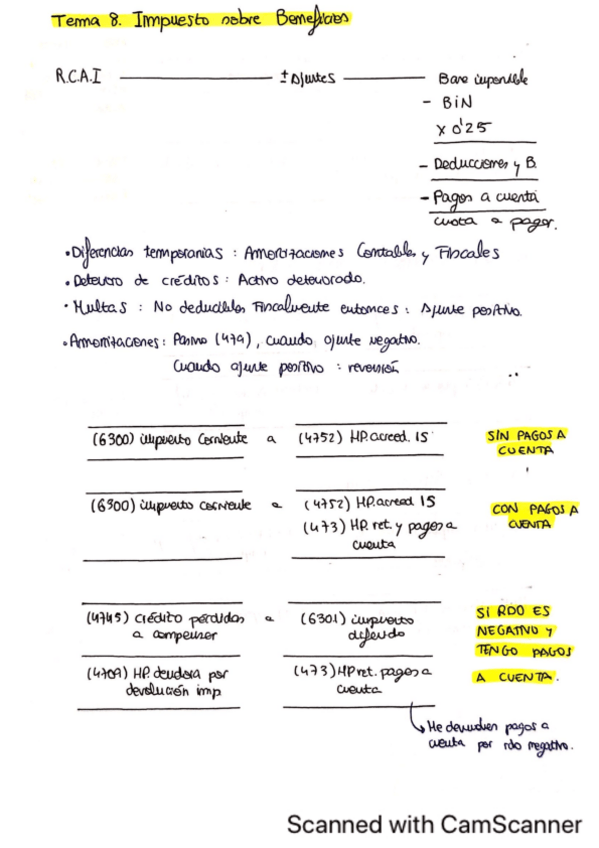 Tema 8. Impuesto sobre Beneficios
R.C.A.I ± Ajustes Base imponible
- BIN
x 0'25
- Deducciones y B.
- Pagos a cuenta
cuota a pagar.
• Diferencias temporarias : Amortizaciones Contables y Fiscales
• Deterioro de créditos : Activo deteriorado.
• Multas : No deducibles Fiscalmente entonces : Ajuste positivo.
• Amortizaciones : Pasivo (479), cuando ajuste negativo.
Cuando ajuste positivo : reversión
(6300) impuesto corriente a (4752) HP. acreed. IS SIN PAGOS A
CUENTA
(6300) impuesto corriente a (4752) HP. acreed IS CON PAGOS A
(473) HP. ret. y pagos a CUENTA
cuenta
(4745) Crédito pérdidas a (6301) impuesto SI RDO ES
a compensar diferido NEGATIVO Y
TENGO PAGOS
(4709) HP. deudora por (473) HP ret. pagos a A CUENTA.
devolución imp cuenta
Me devuelven pagos a
cuenta por rdo negativo.
Scanned with CamScanner